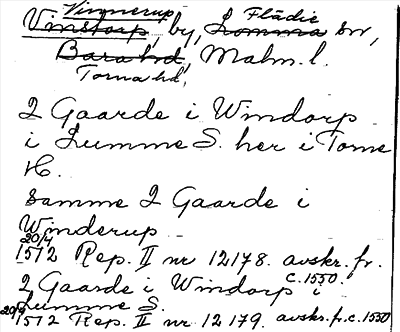 Vinnerup
Vinstorp, by, Lomma Flädie sn,
Bara hd, Malm. l.
Torna hd,
2 Gaarde i Windorp
i Lumme S. her i Torne
H.
Samme 2 Gaarde i
Winderup
20/4 1512 Rep. II nr 12178. avskr. fr.
c. 1550.
2 Gaarde i Windorp i
Lumme S.
20/4 1512 Rep. II nr 12179. avskr. f. c. 1550